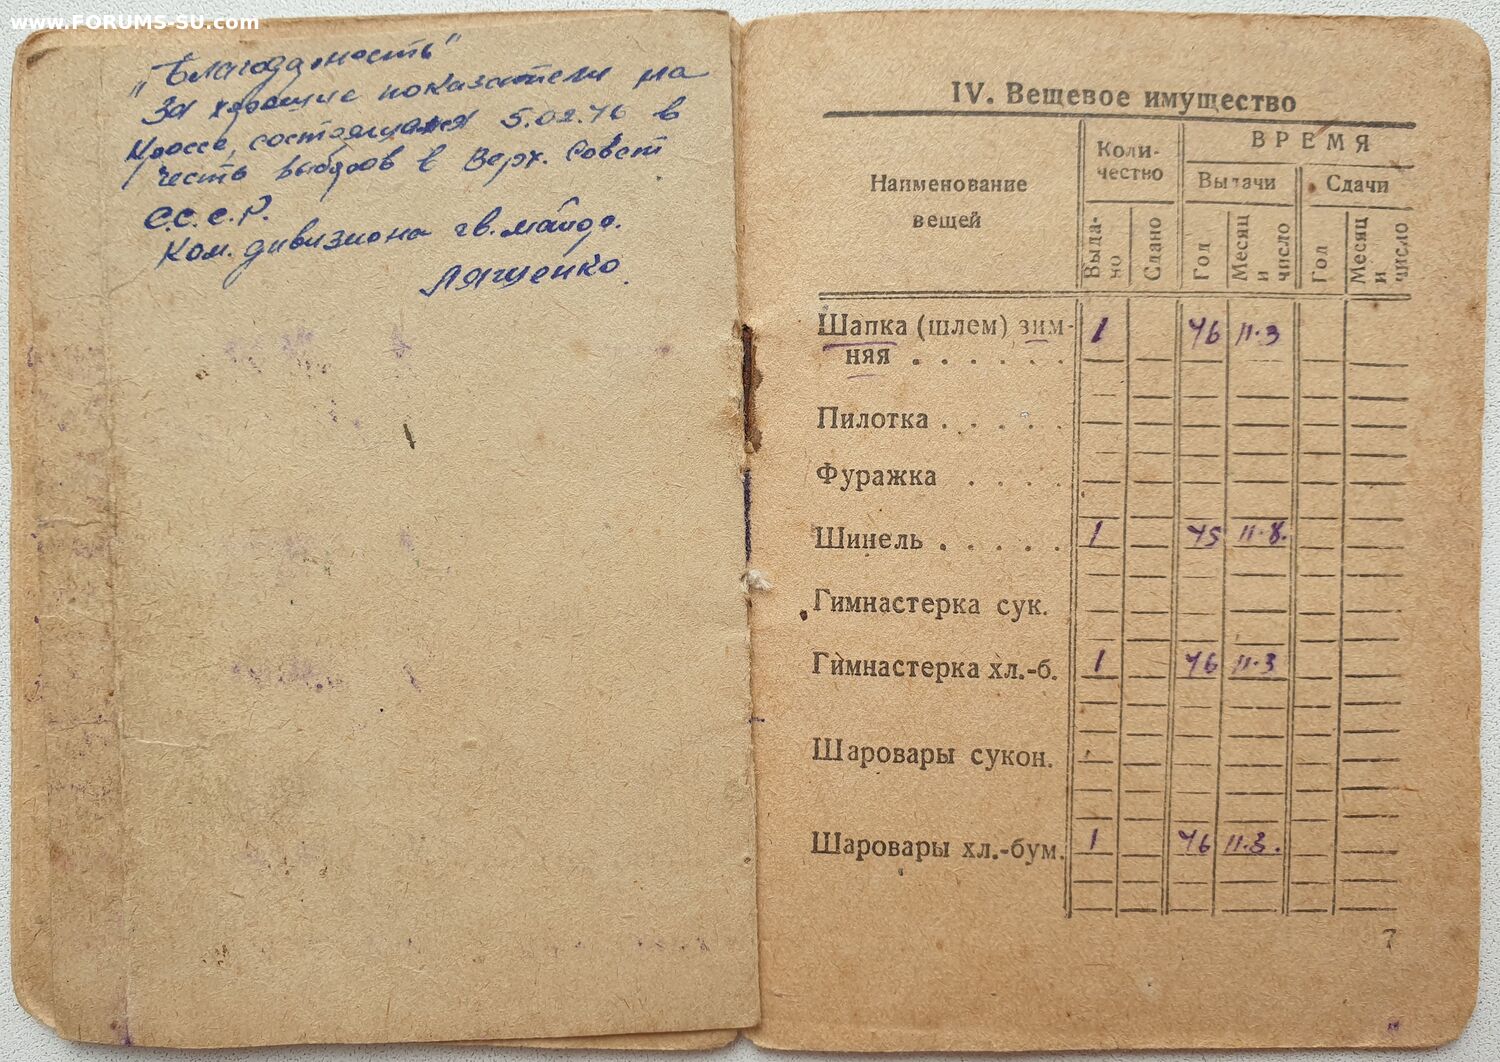 www.FORUMS-SU.com
„Благодарность"
За хорошие показатели на
кроссе, состоящийся 5.02.46 в
честь выборов в Верх. Совет
С.С.С.Р.
Ком. дивизиона гв. майор.
Лященко.
IV. Вещевое имущество
Наименование вещей
Количество
ВРЕМЯ
Выдачи
Сдачи
Выдано
Сдано
Год
Месяц и число
Год
Месяц и число
Шапка (шлем) зим-
няя . . . . . . 1 46 11.3
Пилотка . . . . .
Фуражка . . . .
Шинель . . . . . 1 45 11.8.
Гимнастерка сук.
Гимнастерка хл.-б. 1 46 11.3
Шаровары сукон.
Шаровары хл.-бум. 1 46 11.3.
7